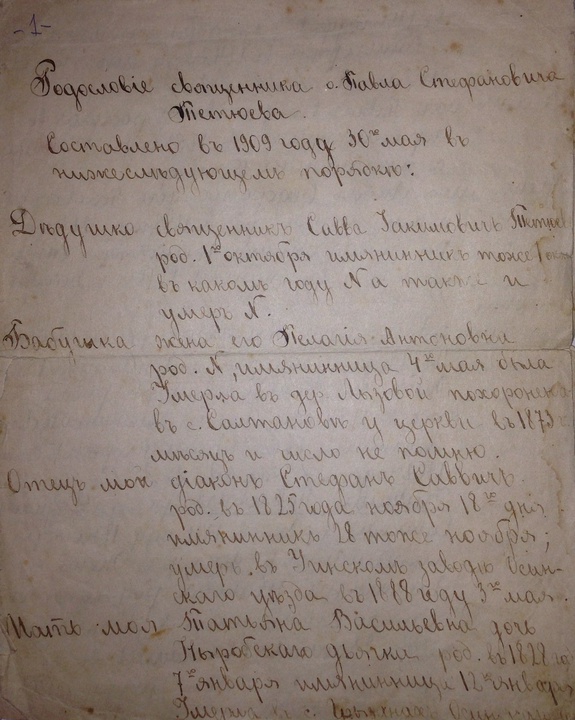 -1-
Родословіе священника о. Павла Стефановича
Тетюева.
Составлено въ 1909 году 30го мая въ
нижеслѣдующемъ порядкѣ:
Дѣдушка священникъ Савва Іакимовичъ
род. 1го октября имянинникъ тоже
въ какомъ году N а также и
умеръ N.
Бабушка жена его Пелагія Антоновна
род. N, имянинница 4го мая была
Умерла въ дер. похоронена
въ с. Салтановѣ у церкви въ 1873
мѣсяцъ и число не помню.
Отецъ мой діаконъ Стефанъ Саввичъ.
род. въ 1825 года ноября 18го дня
имянинникъ 28 тоже ноября;
умеръ въ Уинскомъ заводѣ Осин-
скаго уѣзда въ 1888 году 3го мая.
Мать моя Татьяна Васильевна дочь
Ныробскаго дьячка род. въ 1822
7го января имянинница 12го января
Умерла